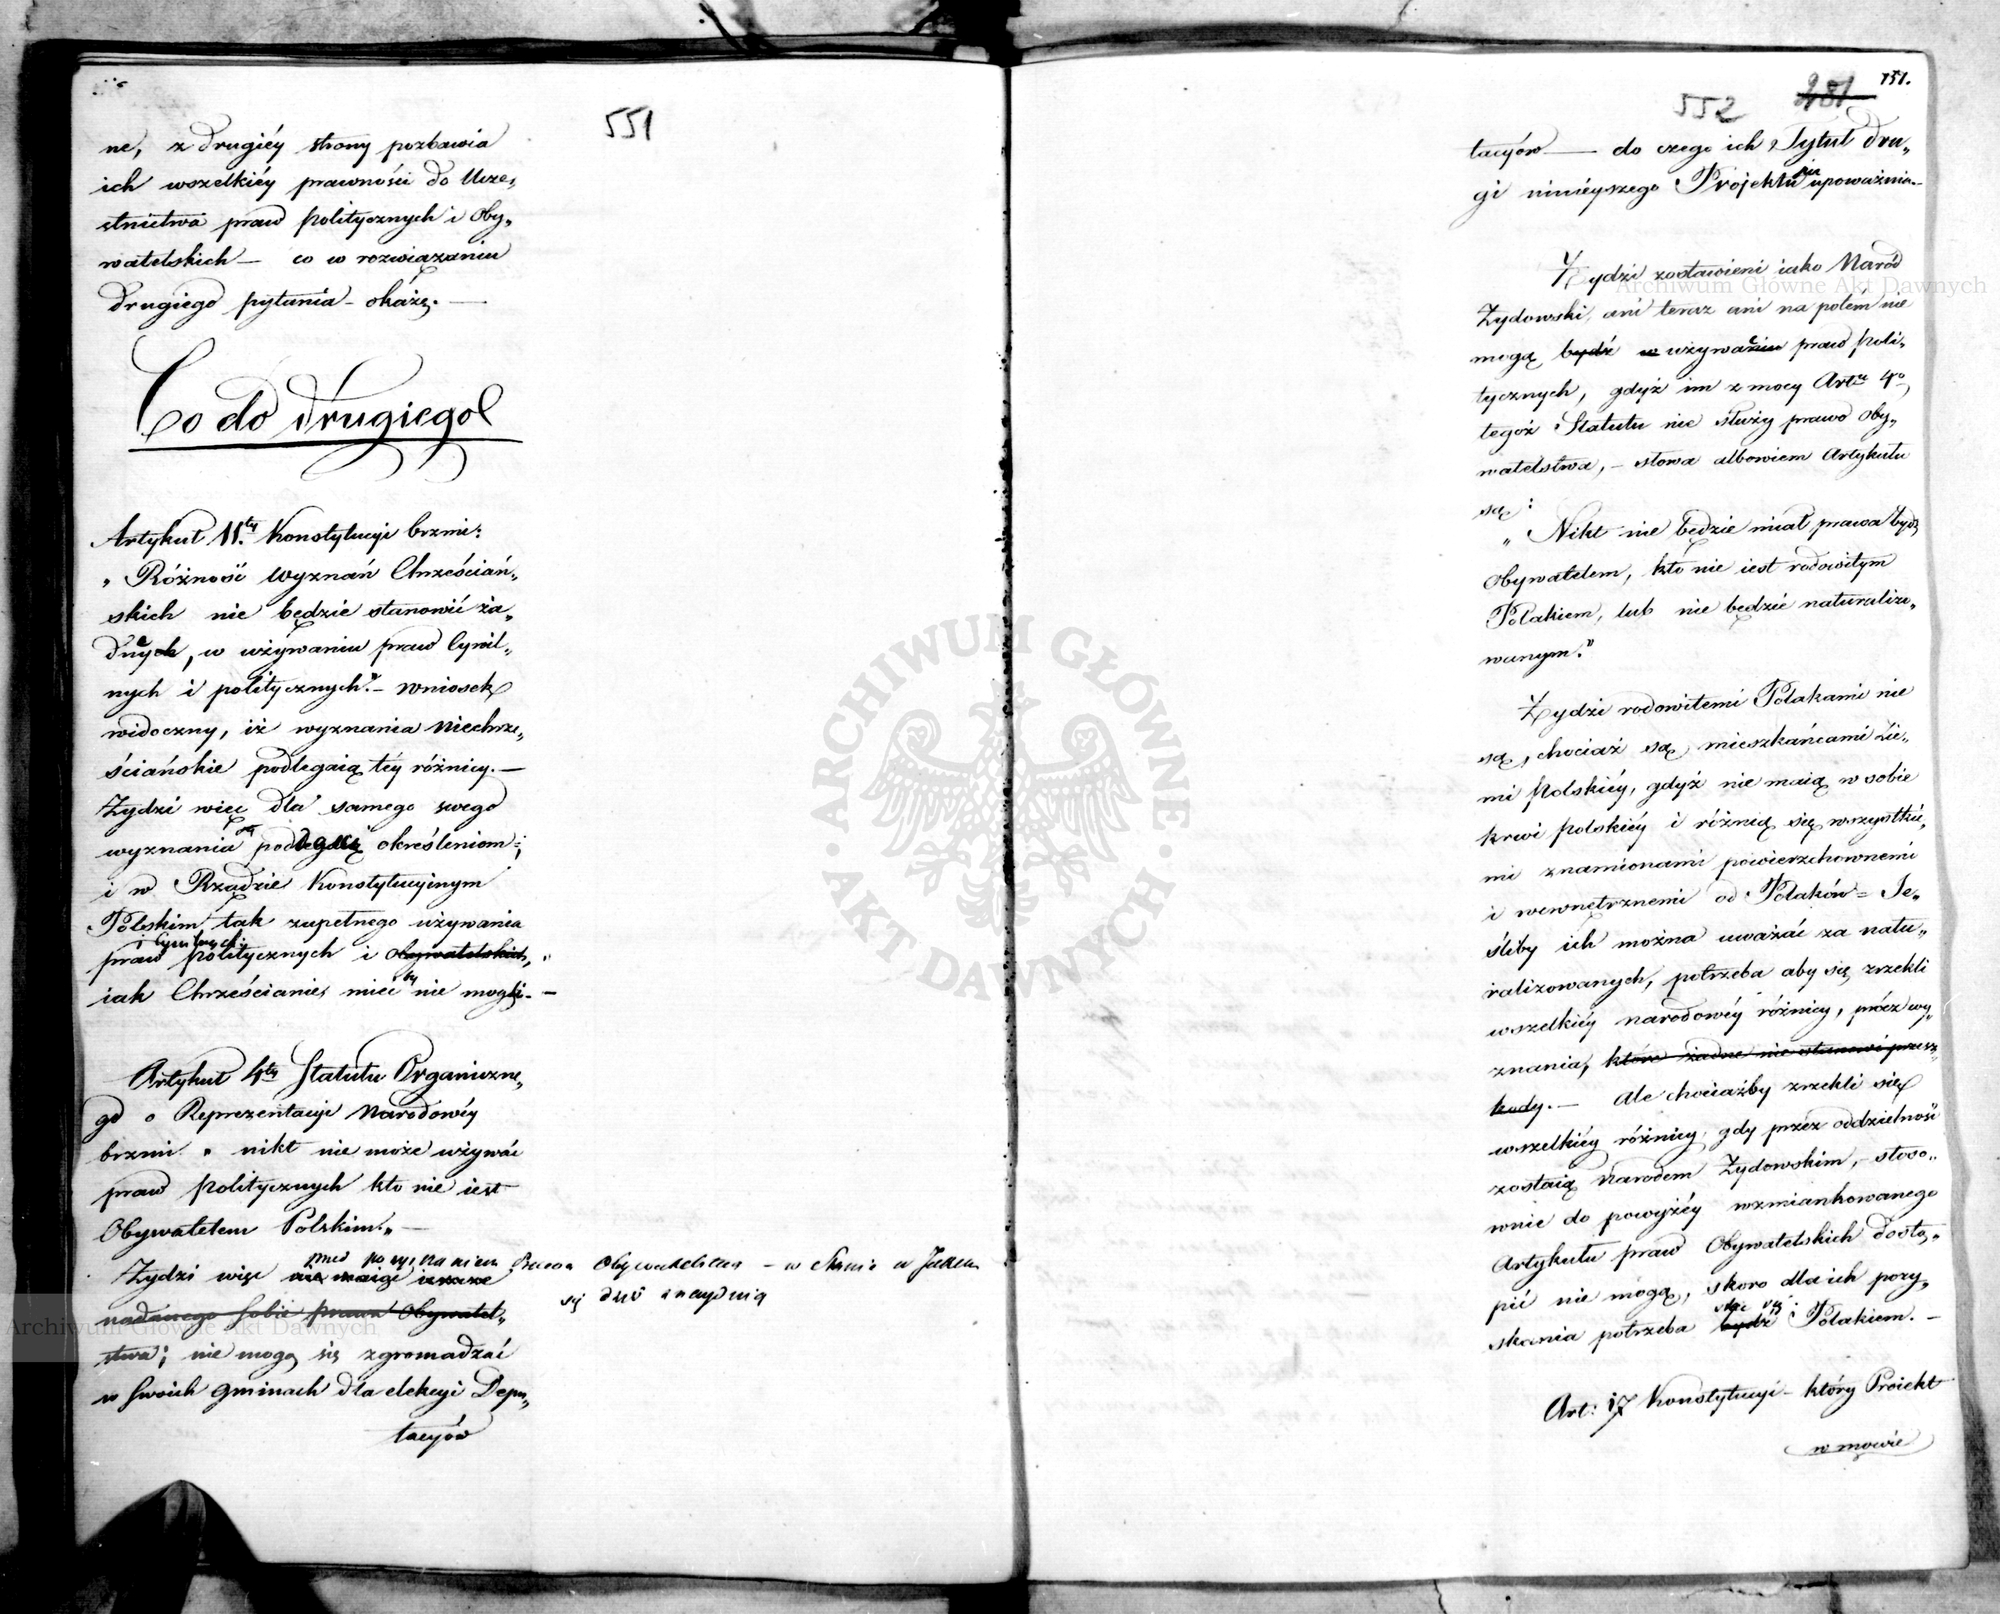 551
ne, z drugiéy strony pozbawia
ich wszelkiéy prawności do Ucze„
stnictwa praw politycznych i Oby„
watelskich — co w rozwiązaniu
drugiego pytania – okáżę. —
Co do drugiego
Artykuł 11.ty Konstytucyi brzmi:
„Różność wyznań Chrześciań„
skich nie będzie stanowić ża„
dnych, w używaniu praw Cywil„
nych i politycznych." – wniosek
widoczny, iż wyznania niechrze„
ściańskie podlegaią téy różnicy. —
Żydzi więc dla samego swego
wyznania podlegać określeniom;
i w Rządzie Konstytucyinym
Polskim tak zupełnego używania
i Cywilnych
praw politycznych i obywatelskich,
iak Chrześcianie, mieć by nie mogli. —
Artykuł 4ty Statutu Organiczne„
go o Reprezentacyi Narodowéy
brzmi „nikt nie może używać
praw politycznych kto nie iest
Obywatelem Polskim„ —
przed pozyskaniem Prawa Obywatelstwa – w Stanie w Jakim
Żydzi więc nie maiąc ieszcze
się dziś znayduią
nadanego sobie prawa Obywatel„
stwa; nie mogą się zgromadzać
w swoich gminach dla elekcyi Depu„
tacyów
552 281 151.
tacyów — do czego ich Tytuł dru„
gi ninieyszego Projektu nie upoważnia. —
Żydzi zostawieni iako Naród
Żydowski, ani teraz ani na potém nie
mogą bydź w używaniu praw poli„
tycznych, gdyż im z mocy Artu 4o,
tegoż Statutu nie służy prawo Oby„
watelstwa, – słowa albowiem Artykułu
są:
„Nikt nie będzie miał prawa bydź
Obywatelem, kto nie iest rodowitym
Polakiem, lub nie będzie naturalizo„
wanym."
Żydzi rodowitemi Polakami nie
są, chociaż są mieszkańcami Zie„
mi Polskiéy, gdyż nie maią w sobie
krwi polskiéy i różnią się wszystkie„
mi znamionami powierzchownemi
i wewnętrznemi od Polaków = Je„
śliby ich można uważać za natu„
ralizowanych, potrzeba aby się zrzekli
wszelkiéy narodowéy różnicy, prócz wy„
znania, które żadne nie stanowi przesz„
kody. — Ale chociażby zrzekli się
wszelkiéy różnicy, gdy przez oddzielność
zostaią Narodem Żydowskim, – stoso„
wnie do powyżéy wzmiankowanego
Artykułu praw Obywatelskich dostą„
pić nie mogą, skoro dla ich pozy„
stać się
skania potrzeba bydź Polakiem. —
Art: 17 Konstytucyi – który Proiekt
w mowie
ARCHIWUM GŁÓWNE AKT DAWNYCH
Archiwum Główne Akt Dawnych
Archiwum Główne Akt Dawnych